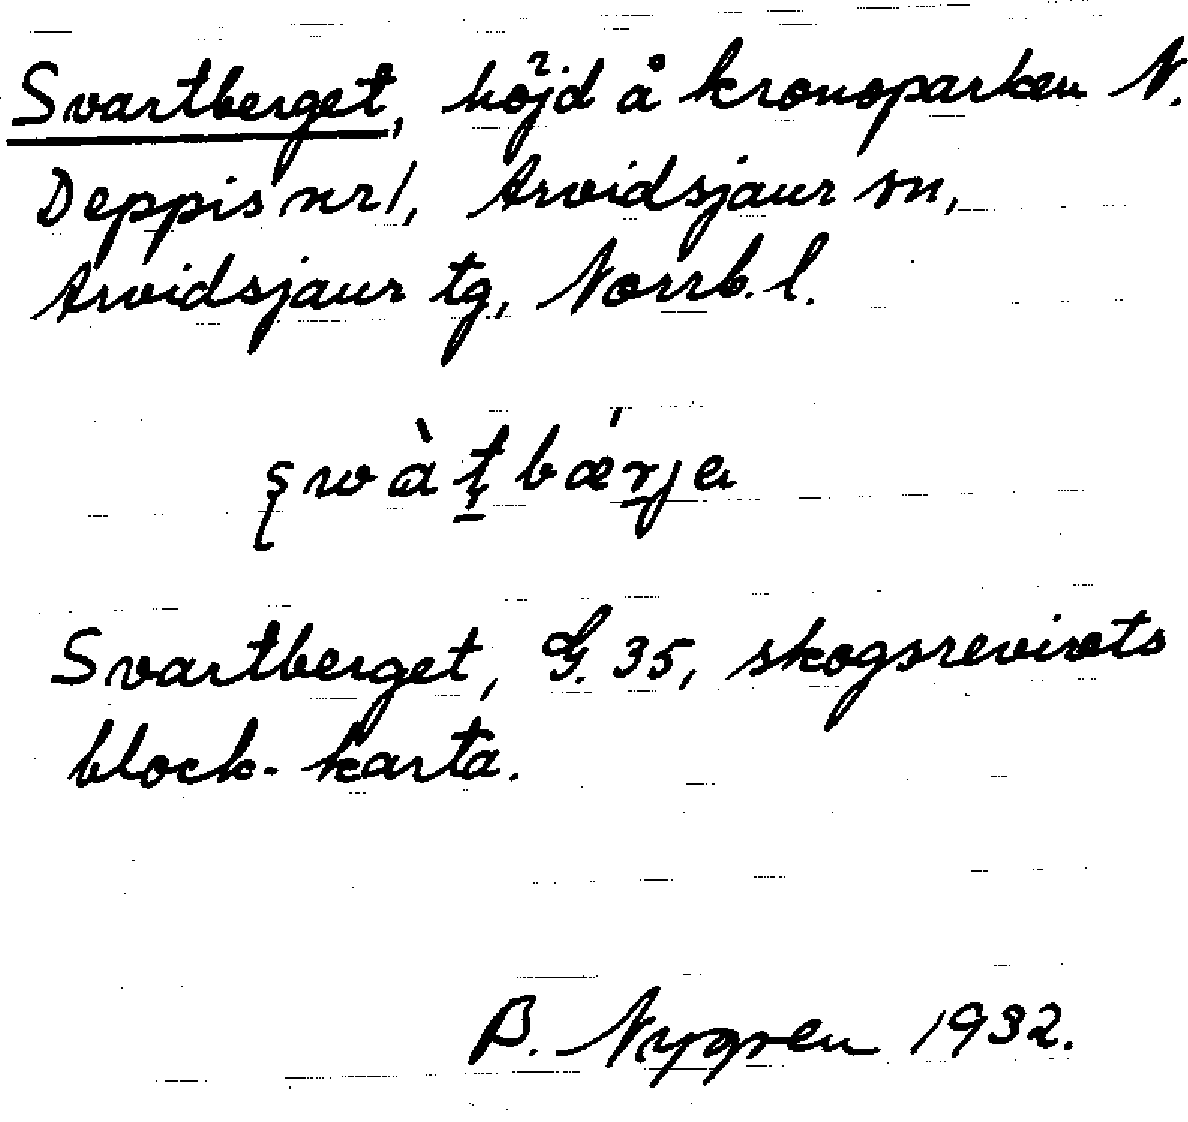 Svartberget, höjd å kronoparken N.
Deppis nr 1, Arvidsjaur sn,
Arvidsjaur tg, Norrb. l.
swàt bǽrja
Svartberget, G. 35, skogsrevirets
block-karta.
B. Nygren 1932.